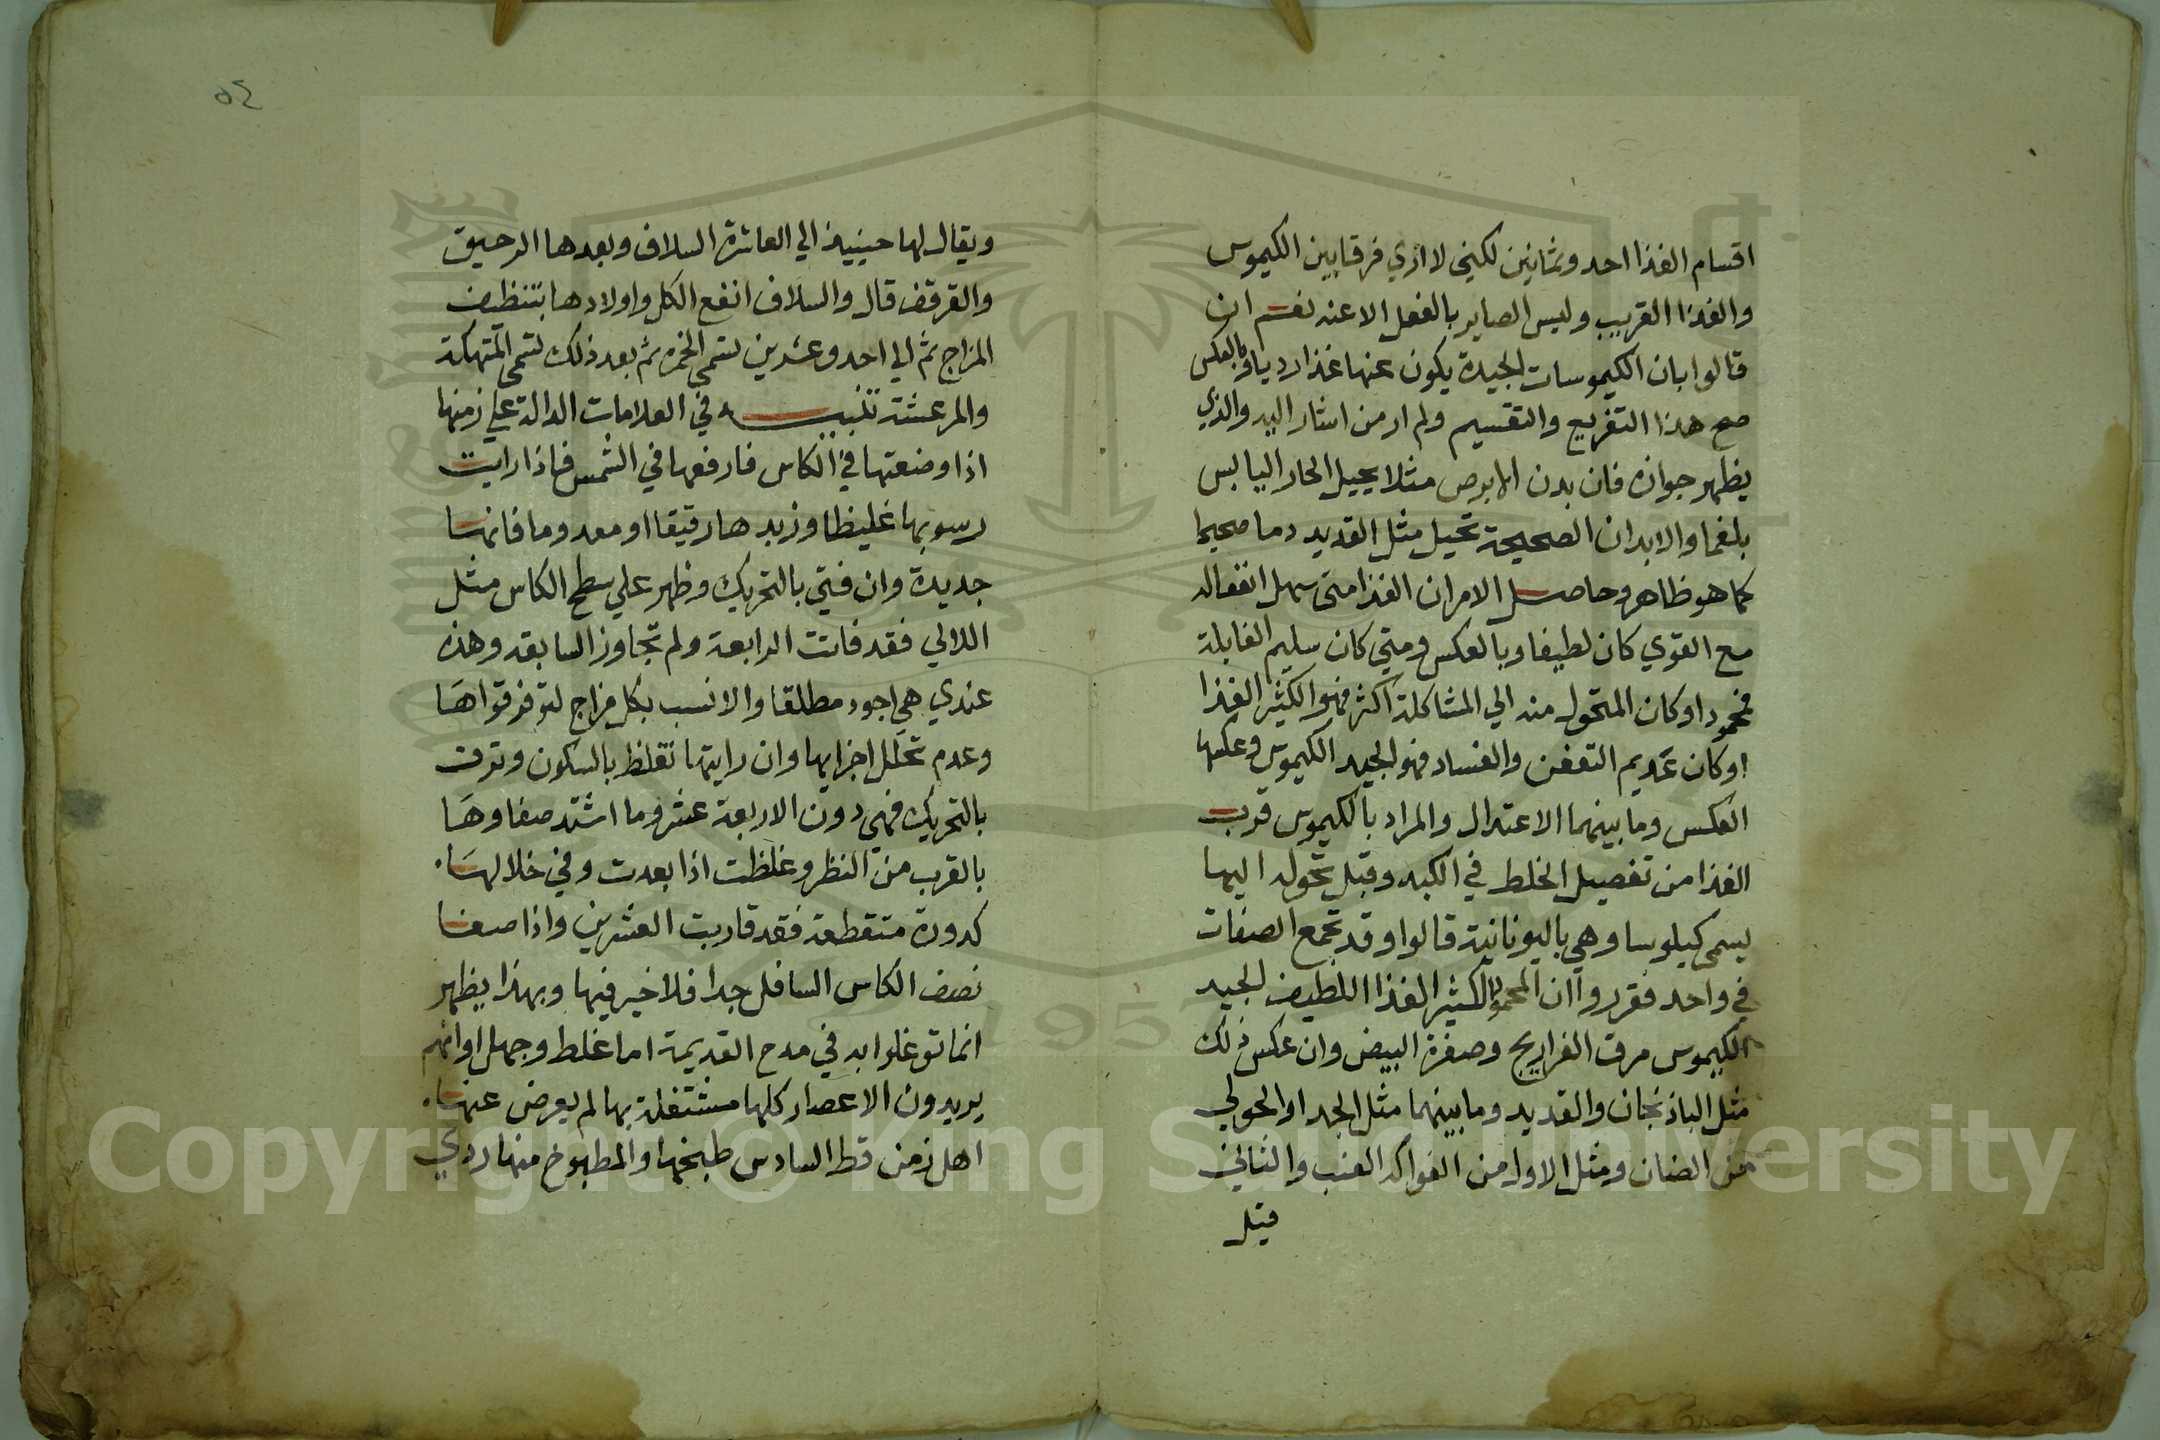 اقسام الغذا احد وثمانين لكنني لا ادري فرقا بين الكيموس
والغذا القريب وليس الصاير بالفعل الا عنه نعم ان
قالوا بان الكيموسات الجيدة يكون عنها غذا رديا وبالعكس
صح هذا التفريع والتقسيم ولم ار من اشار اليه والذي
يظهر جوازه فان بدن الابرص مثلا يحيل الحار اليابس
بلغما والابدان الصحيحة تحيل مثل القديد دما صحيحا
كما هو ظاهر وحاصل الامر ان الغذا متى سهل انفعاله
مع القوي كان لطيفا وبالعكس ومتي كان سليم الغايلة
فمحمود او كان المتحول منه الي المشاكلة اكثر فهو الكثير الغذا
او كان عديم التعفن والفساد فهو الجيد الكيموس وعكسها
العكس وما بينهما الاعتدال والمراد بالكيموس قرب
الغذا من تفصيل الخلط في الكبد وقبل تحوله اليها
يسمى كيلوسا وهي باليونانية قالوا وقد تجمع الصفات
في واحد فقرروا ان المحمود الكثير الغذا اللطيف الجيد
الكيموس مرق الفراريج وصفرة البيض وان عكس ذلك
مثل الباذنجان والقديد وما بينهما مثل الجدا والحولي
من الضان ومثل الاول من الفواكه العنب والثاني
قيل
٥٤
ويقال لها حينيذ الي العاشرة السلاف وبعدها الرحيق
والقرقف قال والسلاف انفع الكل واولادها بتنظيف
المزاج ثم الي احد وعشرين تسمى الخمرة ثم بعد ذلك تسمى المتهكة
والمرعشة تنبيه في العلامات الدالة علي زمنها
اذا وضعتها في الكاس فارفعها في الشمس فاذا رايت
رسوبها غليظا وزبدها رقيقا او معدوما فانها
جديدة وان فني بالتحريك وظهر علي سطح الكاس مثل
اللالي فقد فاتت الرابعة ولم تجاوز السابعه وهذه
عندي هي اجود مطلقا والانسب بكل مزاج لتوفر قواها
وعدم تحلل اجزايها وان رايتها تغلظ بالسكون وترق
بالتحريك فهي دون الاربعة عشر وما اشتد صفاوها
بالقرب من النظر وغلظت اذا بعدت وفي خلالها
كدورة متقطعة فقد قاربت العشرين واذا صفا
نصف الكاس السافل جدا فلا خير فيها وبهذا يظهر
انما توغلوا به في مدح القديمة اما غلط وجهل او انهم
يريدون الاعصار كلها مشتغلة بها لم يعرض عنها
اهل زمن قط السادس طبخها والمطبوخ منها ردي
Copyright © King Saud University
1957